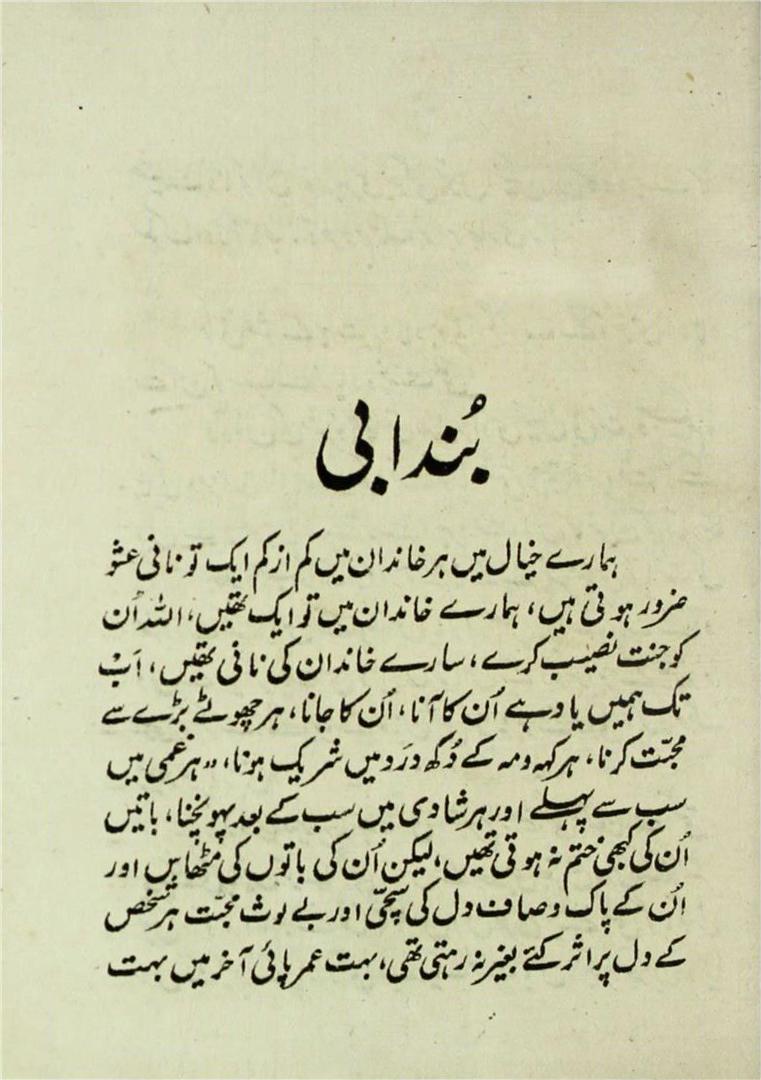 بُندابی
ہمارے خیال میں ہر خاندان میں کم از کم ایک تو نانی عشو
ضرور ہوتی ہیں، ہمارے خاندان میں تو ایک تھیں، اللہ اُن
کو جنت نصیب کرے، سارے خاندان کی نانی تھیں، اَب
تک ہمیں یاد ہے اُن کا آنا، اُن کا جانا، ہر چھوٹے بڑے سے
محبّت کرنا، ہر کہہ ومہ کے دُکھ دَرد میں شریک ہونا، ہر غمی میں
سب سے پہلے اور ہر شادی میں سب کے بعد پہونچنا، باتیں
اُن کی کبھی ختم نہ ہوتی تھیں، لیکن اُن کی باتوں کی مٹھاس اور
اُن کے پاک و صاف دل کی سچّی اور بے لوث محبّت ہر شخص
کے دل پر اثر کئے بغیر نہ رہتی تھی، بہت عمر پائی آخر میں بہت